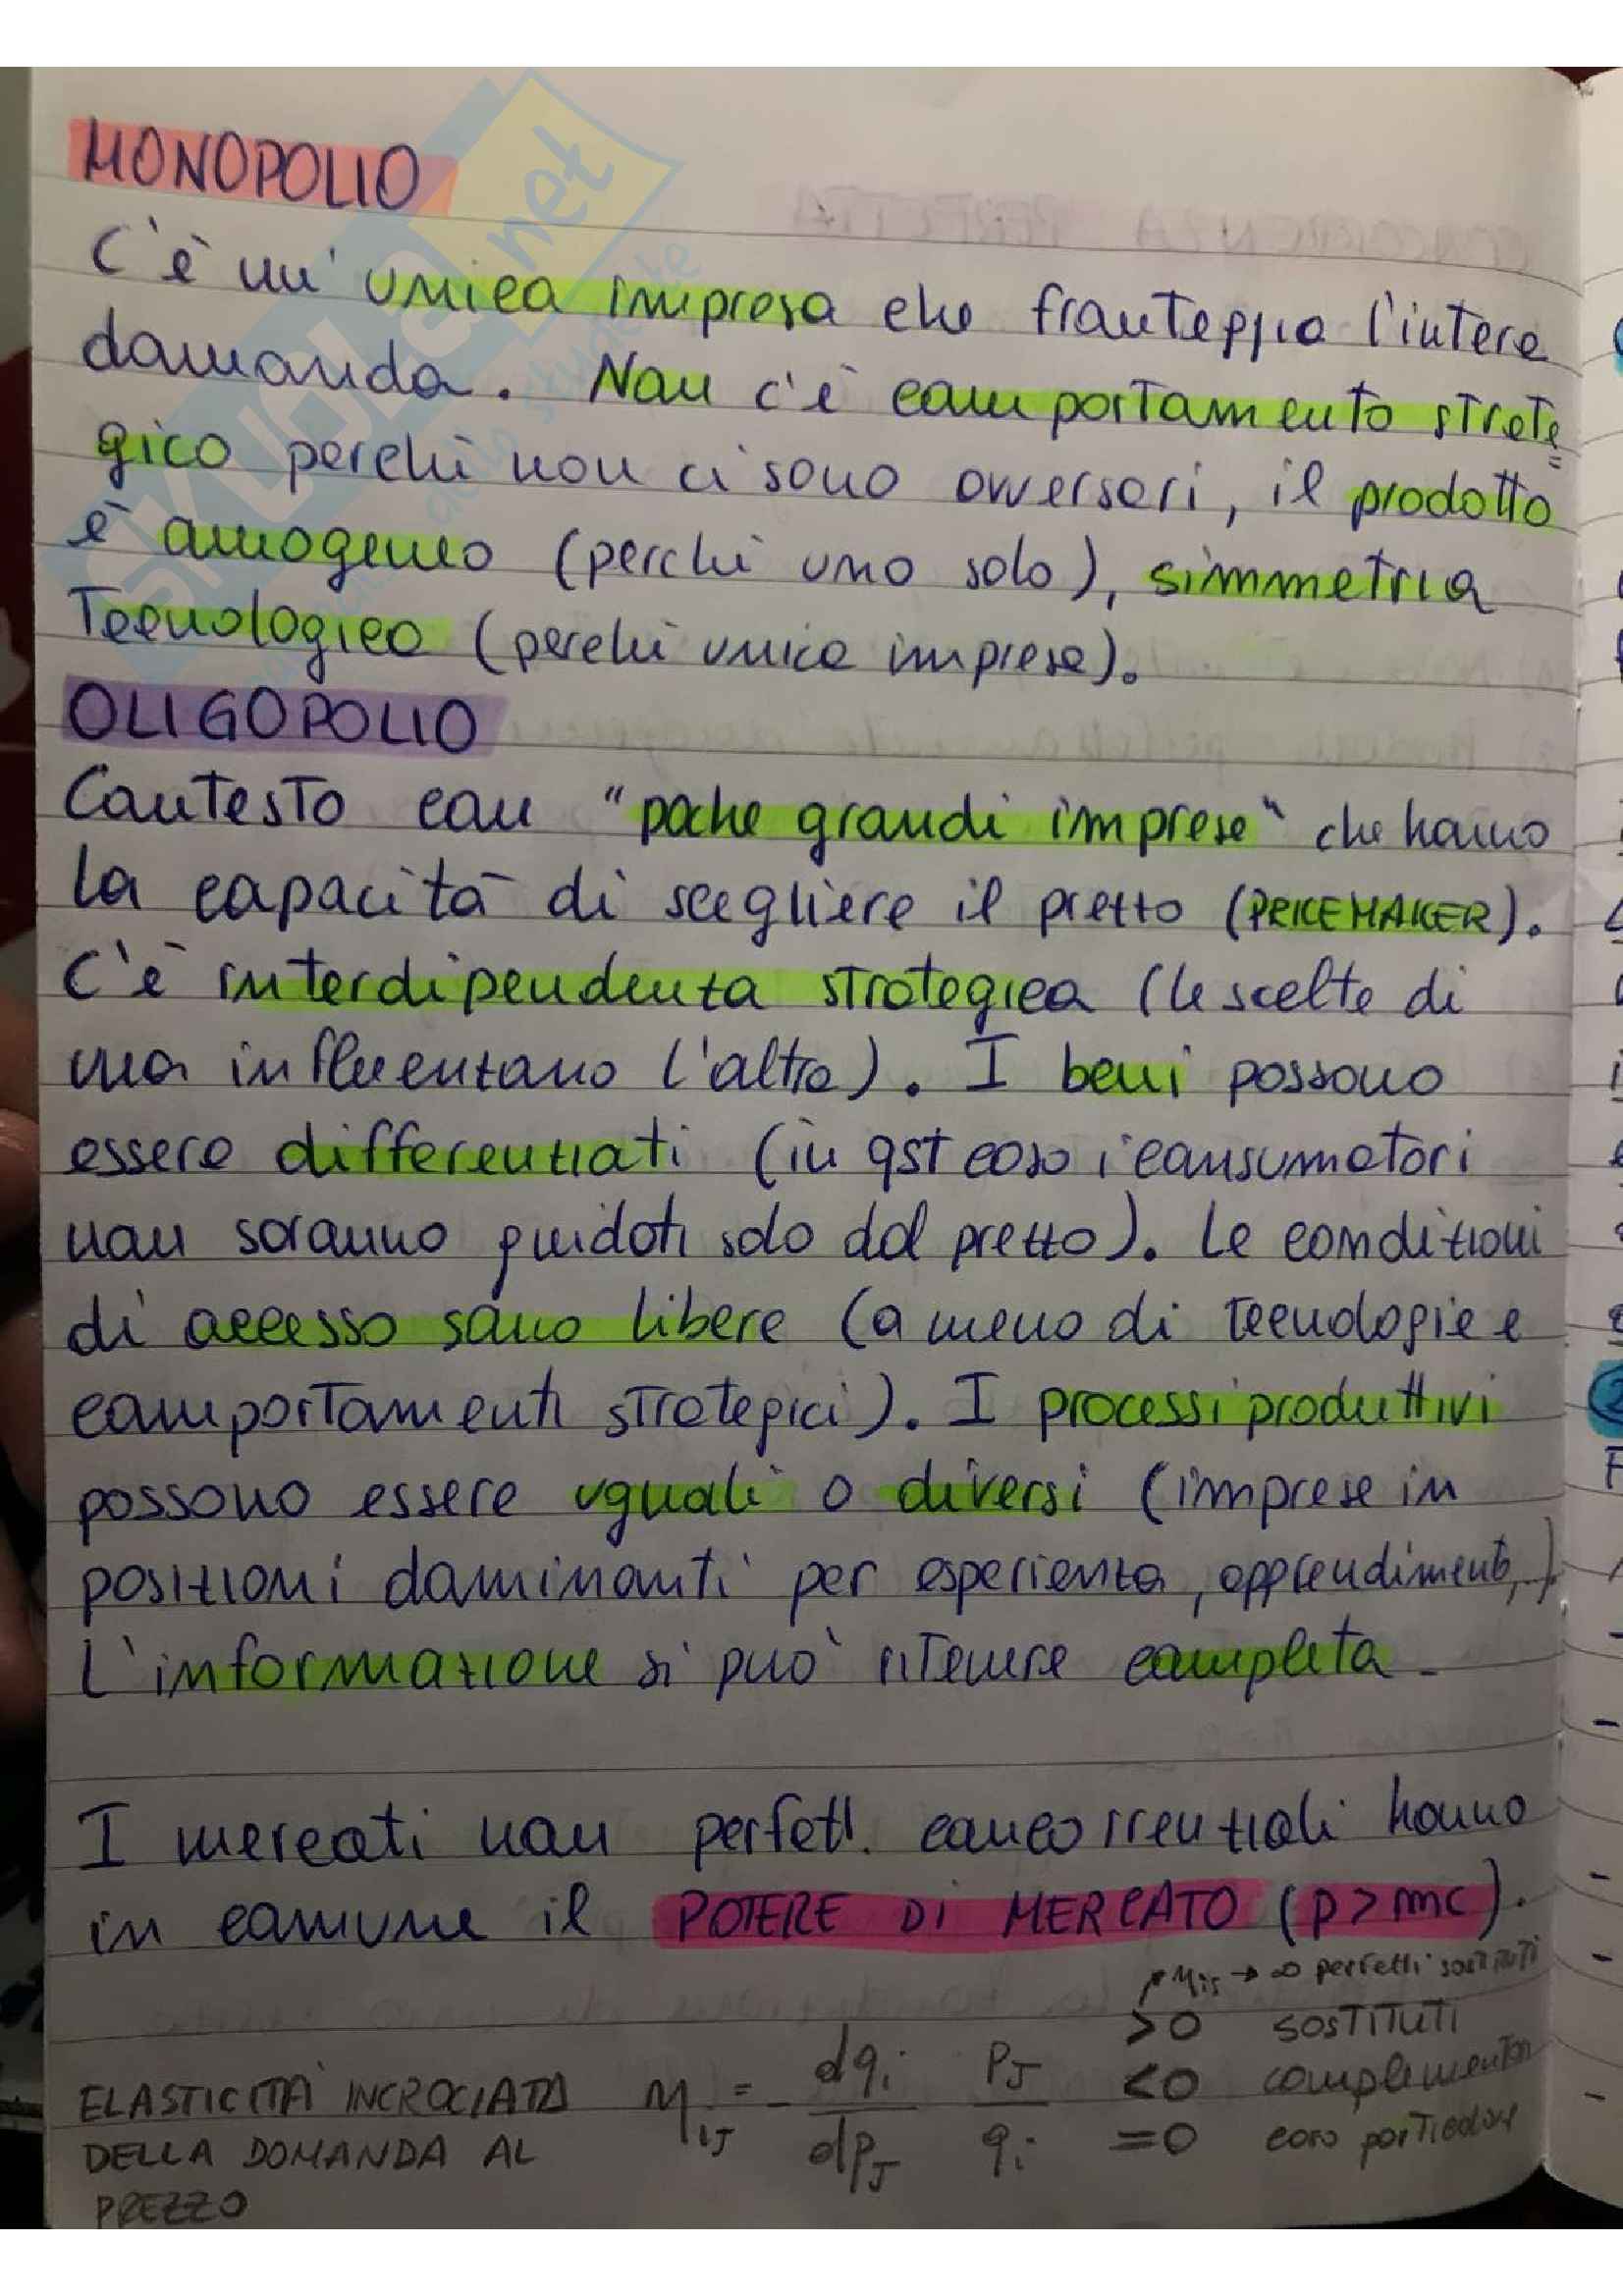 MONOPOLIO
C'è un'unica impresa che fronteggia l'intera
domanda. Non c'è comportamento strate
gico perchè non ci sono avversari, il prodotto
è omogeneo (perchè uno solo), simmetria
Tecnologica (perchè unica impresa).
OLIGOPOLIO
Contesto con "poche grandi imprese" che hanno
la capacità di scegliere il prezzo (PRICEMAKER).
C'è interdipendenza strategica (le scelte di
una influenzano l'altra). I beni possono
essere differenziati (in qst caso i consumatori
non saranno guidati solo dal prezzo). Le condizioni
di accesso sono libere (a meno di tecnologie e
comportamenti strategici). I processi produttivi
possono essere uguali o diversi (imprese in
posizioni dominanti per esperienza, apprendimento,..).
L'informazione si può ritenere completa.
I mercati non perfett. concorrenziali hanno
in comune il POTERE DI MERCATO (p>mc).
ηij → ∞ perfetti sostituti
>0 SOSTITUTI
ELASTICITÀ INCROCIATA ηij = - dqi/dpj pj/qi <0 complementari
DELLA DOMANDA AL =0 caso particolare
PREZZO
SKUOLA.net